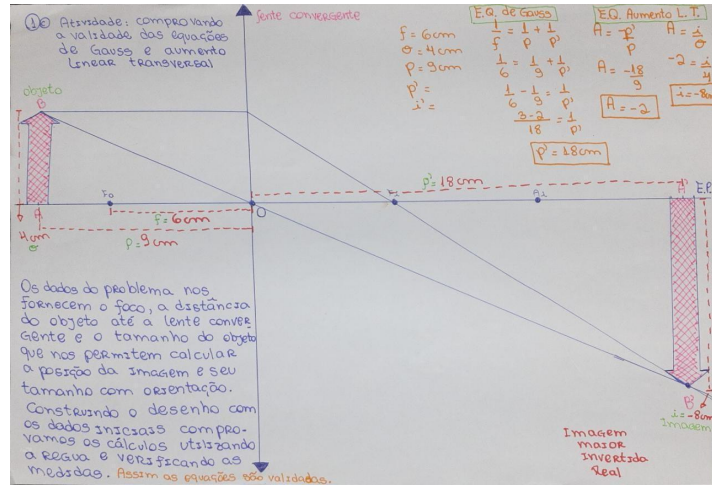 1º Atividade: comprovando
a validade das equações
de Gauss e aumento
linear transversal
lente convergente
f = 6cm
o = 4cm
p = 9cm
p' =
i' =
E.Q. de Gauss
1/f = 1/p + 1/p'
1/6 = 1/9 + 1/p'
1/6 - 1/9 = 1/p'
3-2/18 = 1/p'
p' = 18cm
E.Q. Aumento L.T.
A = -p'/p
A = i/o
A = -18/9
-2 = i/4
A = -2
i = -8c
objeto
B
A
4cm
o
Fo
f = 6cm
p = 9cm
O
p' = 18cm
A'
E.P.
B'
i = -8cm
Imagem
Os dados do problema nos
fornecem o foco, a distância
do objeto até a lente conver
gente e o tamanho do objeto
que nos permitem calcular
a posição da imagem e seu
tamanho com orientação.
Construindo o desenho com
os dados iniciais compro-
vamos os cálculos utilizando
a regua e verificando as
medidas. Assim as equações são validadas.
Imagem
maior
invertida
Real